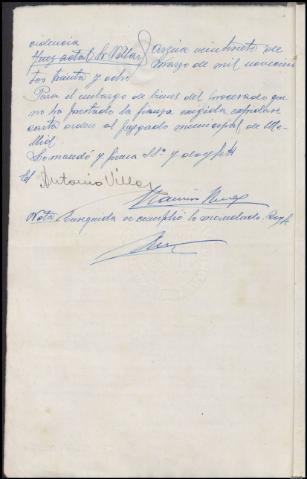 videncia
Juez actal Sr Villar
marzo de mil novecien
tos treinta y ocho
Para el embargo de bienes del procesado que
no ha prestado la fianza exigida
carta orden al juzgado municipal de Ma-
drid.
Lo mandó y firma Sª y doy fé
Antonio Villar
Ramón
Nota Enseguida se cumplió lo mandado. Doy fé.